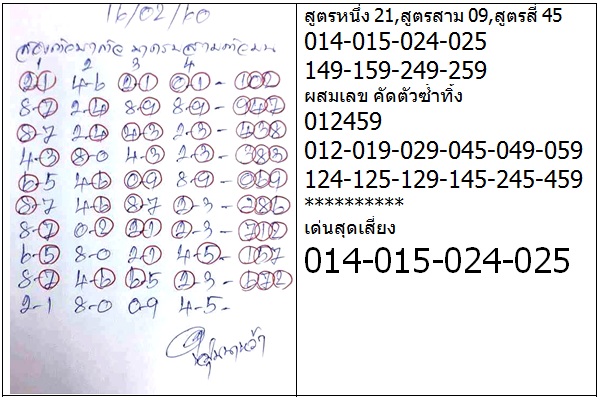 16/02/60
สองตัวมาตัว มาตรงสามตัวบน
1 2 3 4
21 4-6 2-1 0 1 - 102
8-7 2-4 8-9 8-9 - 947
8-7 2-4 4-3 2-3 - 438
4-3 8-0 4-3 2-3 - 383
6-5 4-6 09 8-9 - 059
8-7 4-6 8-7 2-3 - 286
8-7 0-2 21 2-3 - 712
6-5 8-0 2-1 4-5 - 157
8-7 4-6 6-5 2-3 - 672
2-1 8-0 0-9 4-5-
สูตรหนึ่ง 21,สูตรสาม 09,สูตรสี่ 45
014-015-024-025
149-159-249-259
ผสมเลข คัดตัวซ้ำทิ้ง
012459
012-019-029-045-049-059
124-125-129-145-245-459
**********
เด่นสุดเสี่ยง
014-015-024-025